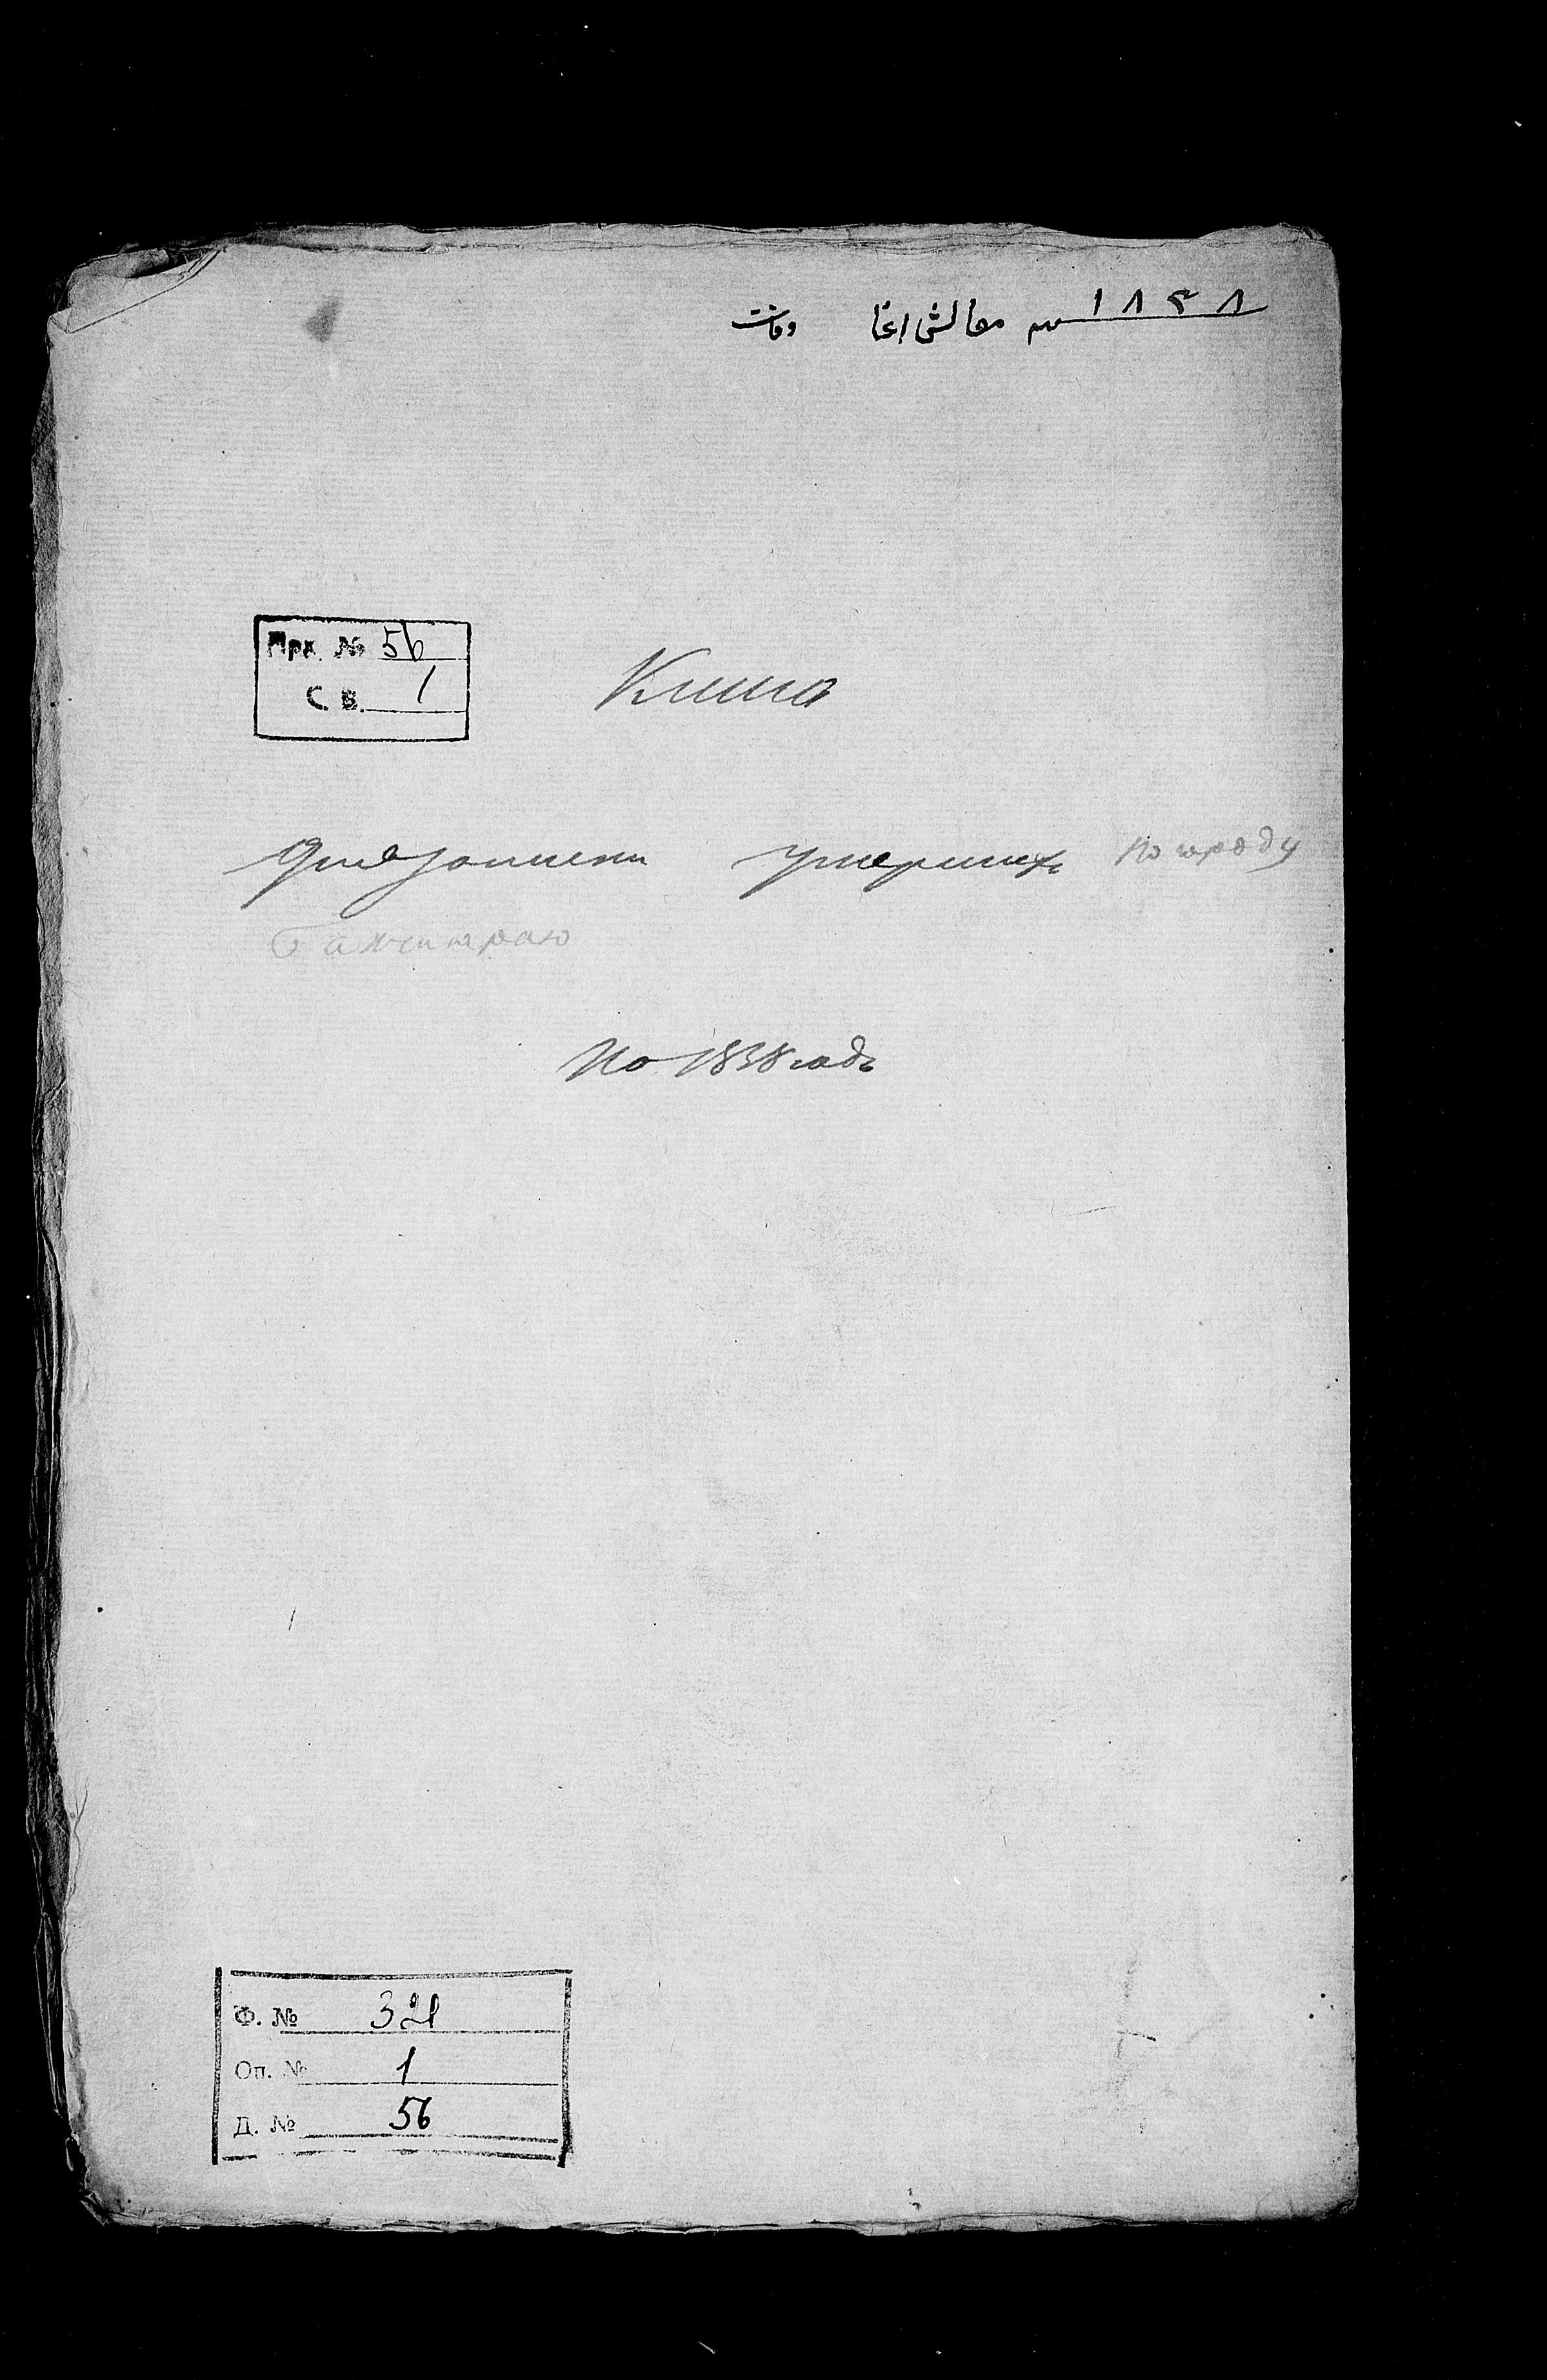 ١٨٣٨ وفات
Арх. № 56
С в. 1
Книга
для записки умершихъ по городу
Бахчисараю
На 1838 годъ
Ф. № 321
Оп. № 1
Д. № 56